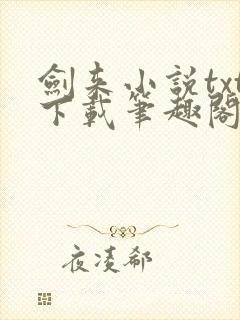 劍来小説txt
下載筆趣閣
夜凌郗